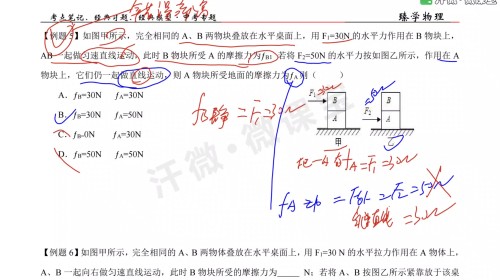 考点笔记、经典习题、
臻学物理
【例题5】如图甲所示，完全相同的 A、B 两物块叠放在水平桌面上，用 F₁=30N 的水平力作用在 B 物块上，
AB 一起做匀速直线运动，此时 B 物块所受 A 的摩擦力为 fB；若将 F₂=50N 的水平力按如图乙所示，作用在 A
物块上，它们仍一起做直线运动，则 A 物块所受地面的摩擦力为 fA 则（ ）
A．fB=30N fA=30N
B．fB=30N fA=50N
C．fB=0N fA=30N
D．fB=50N fA=50N
F₁ B A
甲
F₂ B A
fB静 = F₁ = 30N
fA = F₁ = 30N
fA = F₂ = 50N
= 30N
汗微·微课堂
【例题6】如图甲所示，完全相同的 A、B 两物体叠放在水平桌面上，用 F₁=30 N 的水平拉力作用在 A 物体上，
A、B 一起向右做匀速直线运动，此时 B 物块所受的摩擦力为 N；若将 A、B 按图乙所示紧靠放于该桌